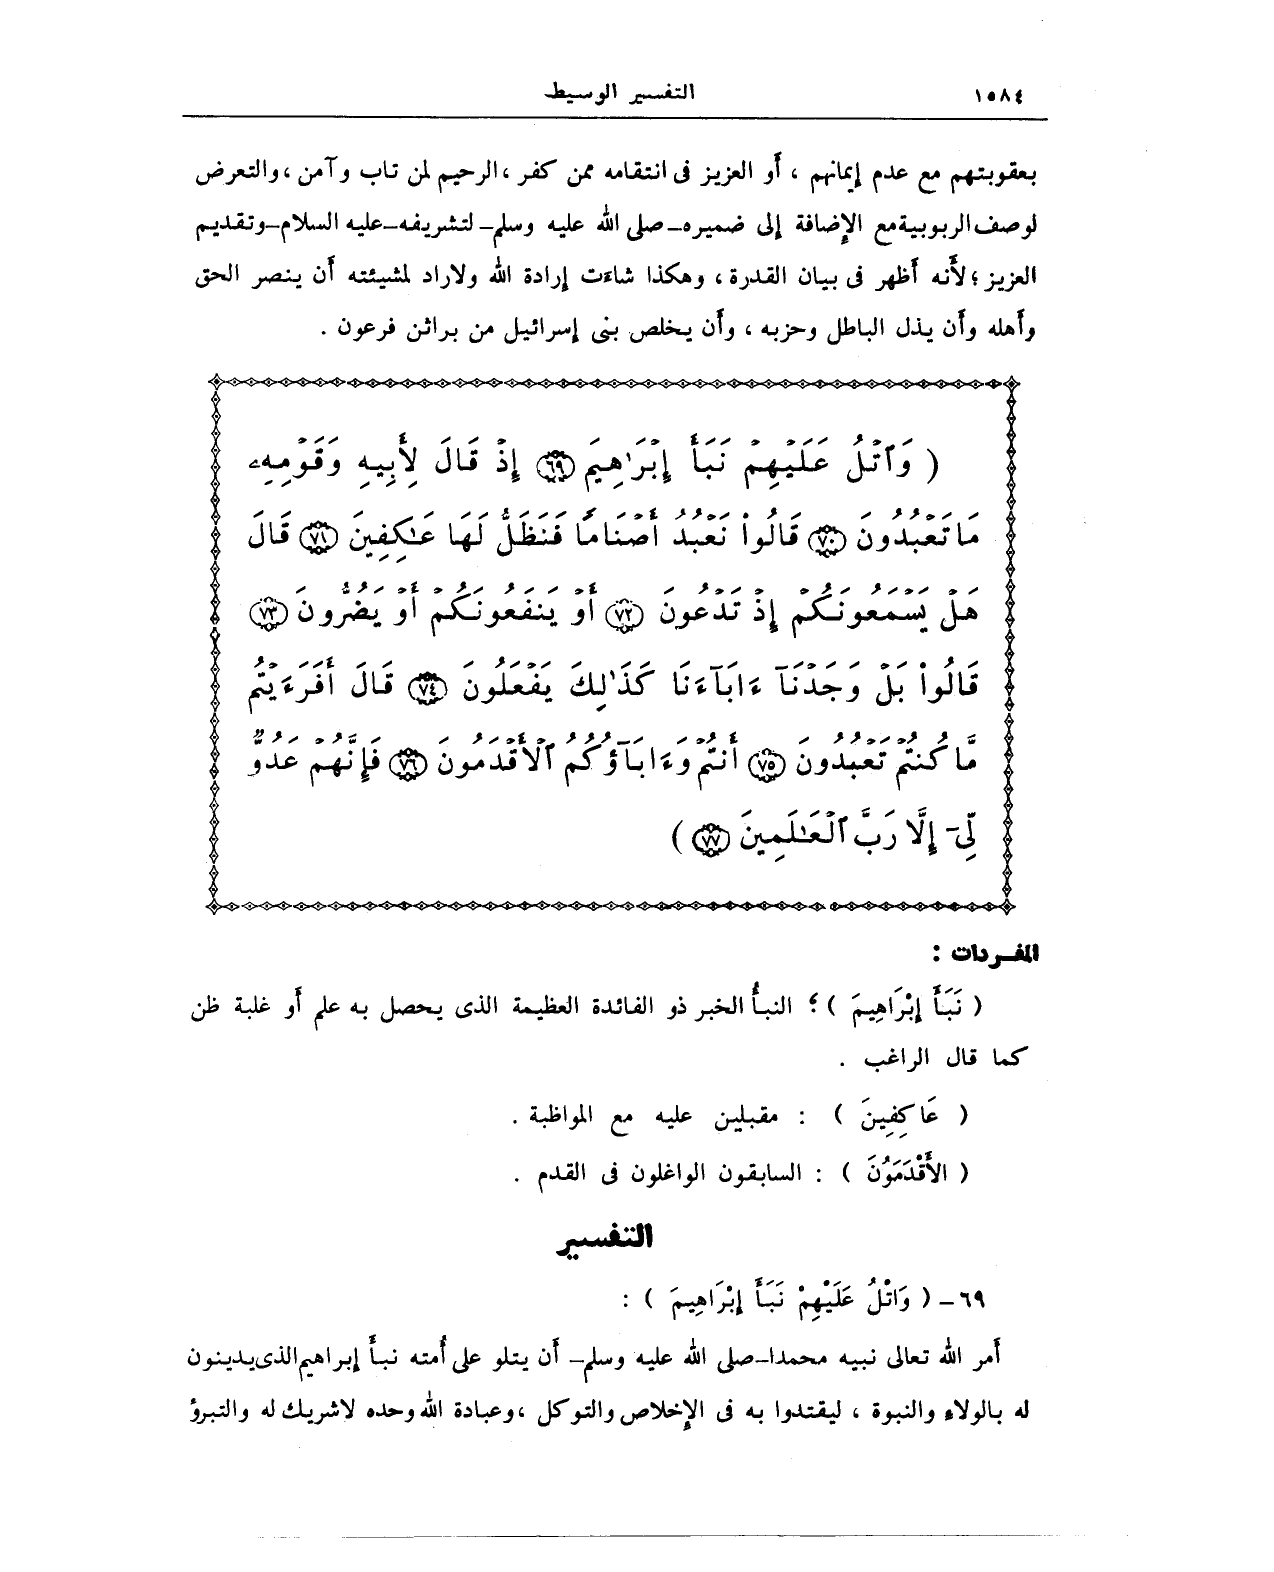 ١٥٨٤ التفسير الوسيط
بعقوبتهم مع عدم إيمانهم ، أو العزيز فى انتقامه ممن كفر ، الرحيم لمن تاب وآمن ، والتعرض
لوصف الربوبية مع الإضافة إلى ضميره – صلى الله عليه وسلم – لتشريفه – عليه السلام – وتقديم
العزيز ؛ لأنه أظهر فى بيان القدرة ، وهكذا شاءت إرادة الله ولاراد لمشيئته أن ينصر الحق
وأهله وأن يذل الباطل وحزبه ، وأن يخلص بنى إسرائيل من براثن فرعون .
( وَٱتْلُ عَلَيْهِمْ نَبَأَ إِبْرَٰهِيمَ ٦٩ إِذْ قَالَ لِأَبِيهِ وَقَوْمِهِۦ
مَا تَعْبُدُونَ ٧٠ قَالُوا۟ نَعْبُدُ أَصْنَامًا فَنَظَلُّ لَهَا عَٰكِفِينَ ٧١ قَالَ
هَلْ يَسْمَعُونَكُمْ إِذْ تَدْعُونَ ٧٢ أَوْ يَنفَعُونَكُمْ أَوْ يَضُرُّونَ ٧٣
قَالُوا۟ بَلْ وَجَدْنَآ ءَابَآءَنَا كَذَٰلِكَ يَفْعَلُونَ ٧٤ قَالَ أَفَرَءَيْتُم
مَّا كُنتُمْ تَعْبُدُونَ ٧٥ أَنتُمْ وَءَابَآؤُكُمُ ٱلْأَقْدَمُونَ ٧٦ فَإِنَّهُمْ عَدُوٌّ
لِّىٓ إِلَّا رَبَّ ٱلْعَٰلَمِينَ ٧٧ )
المفردات :
( نَبَأَ إِبْرَاهِيمَ ) ؛ النبأُ الخبر ذو الفائدة العظيمة الذى يحصل به علم أو غلبة ظن
كما قال الراغب .
( عَاكِفِينَ ) : مقبلين عليه مع المواظبة .
( الأَقْدَمُونَ ) : السابقون الواغلون فى القدم .
التفسير
٦٩ – ( وَاتْلُ عَلَيْهِمْ نَبَأَ إِبْرَاهِيمَ ) :
أمر الله تعالى نبيه محمدا – صلى الله عليه وسلم – أن يتلو على أُمته نبأ إبراهيم الذى يدينون
له بالولاء والنبوة ، ليقتدوا به فى الإخلاص والتوكل ، وعبادة الله وحده لاشريك له والتبرؤ